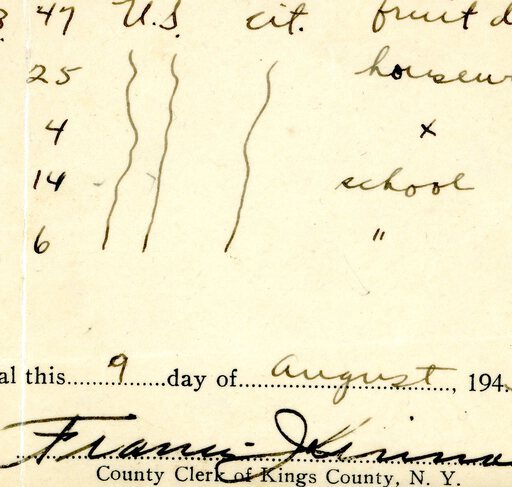 47 U.S. cit. fruit d
25 housew
4 x
14 school
6 "
al this......9......day of......August......, 194.
Francis J.
County Clerk of Kings County, N. Y.